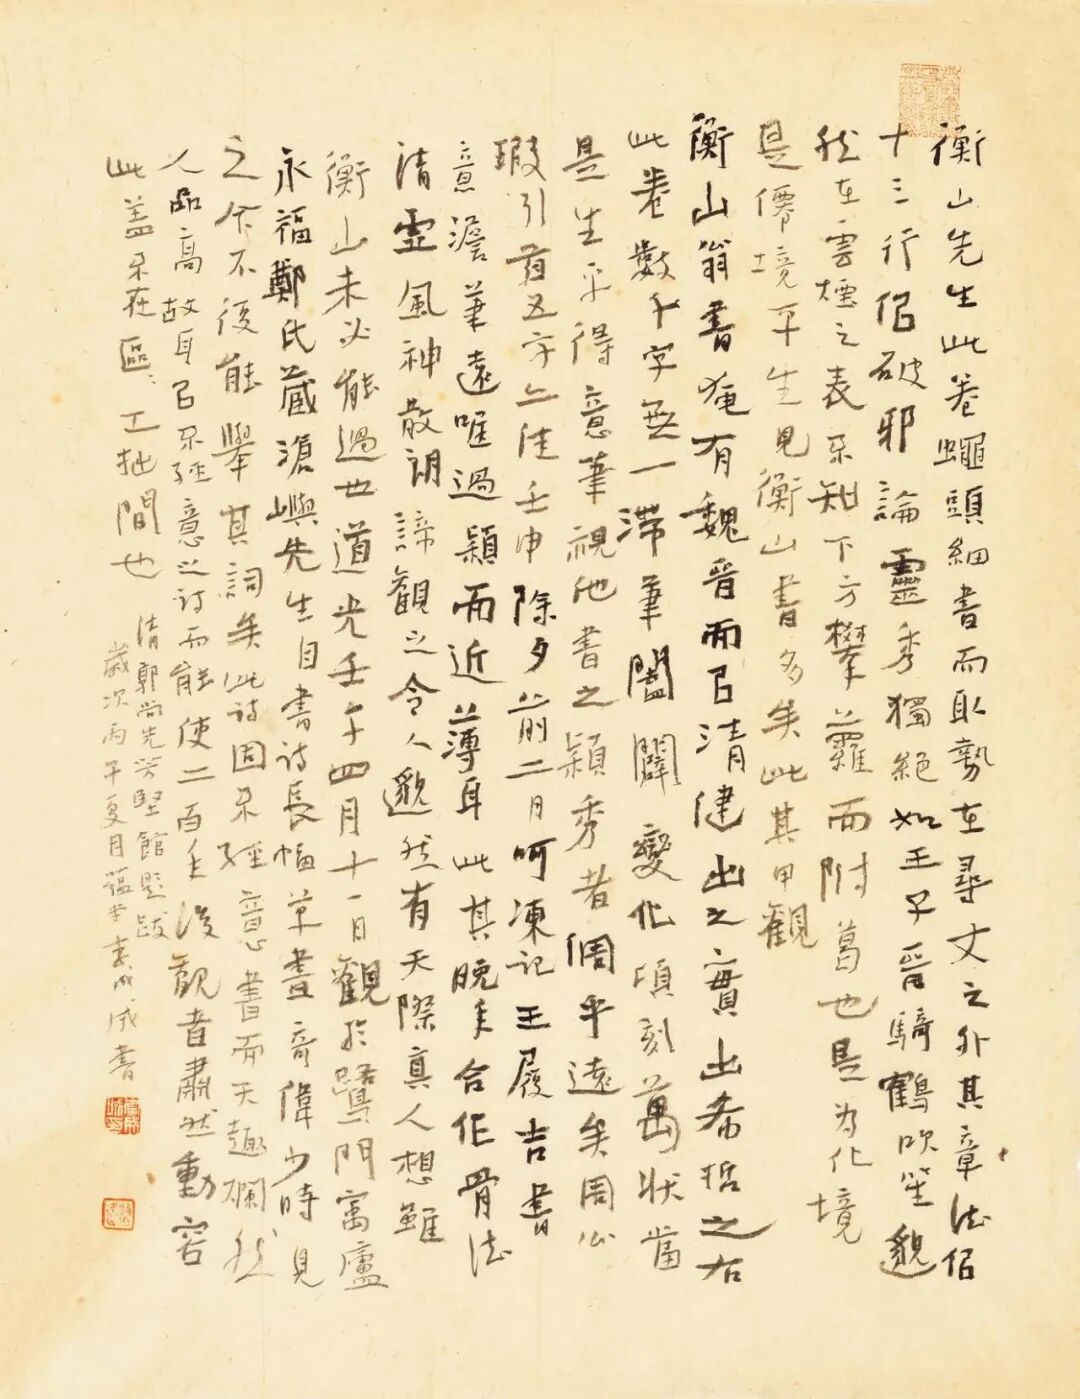 衡山先生此卷蠅頭細書而取勢在尋丈之外其章法侶
十三行侶破邪論靈秀獨絕如王子晉騎鶴吹笙邈
然在雲煙之表不知下方攀蘿而附葛也是為化境
是僊境平生見衡山書多矣此其甲觀
衡山翁書奄有魏晉而以清健出之實出希哲之右
此卷數千字無一滯筆闔闢變化頃刻萬狀當
是生平得意筆視他書之穎秀者倜乎遠矣周公
瑕引首五字亦佳壬申除夕前二日呵凍記王履吉書
意澹筆遠唯過穎而近薄耳此其晚年合作骨法
清靈風神散朗諦觀之令人邈然有天際真人想雖
衡山未必能過也道光壬午四月十一日觀於鷺門寓廬
永福鄭氏藏滄嶼先生自書詩長幅草畫奇偉少時見
之今不復能舉其詞矣此詩固不經意書而天趣爛然
人品高故耳以不經意之詩而能使二百年後觀者肅然動容
此蓋不在區:工拙間也
清郭尚先芳堅館題跋
歲次丙子夏月 書